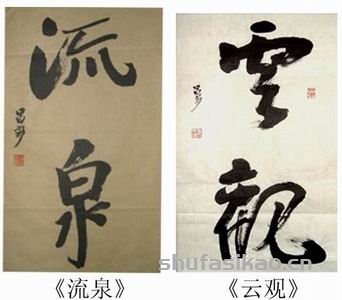 流泉
雲觀
shufasikao.cn
《流泉》
《云观》